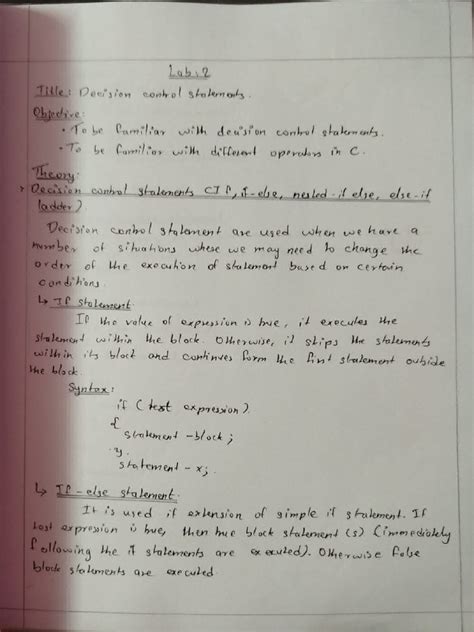 Lab: 2
Title: Decision control statements.
Objective:
• To be familiar with decision control statements.
• To be familiar with different operators in C.
Theory:
Decision control statements (If, if-else, nested-if else, else-if
ladder)
Decision control statement are used when we have a
number of situations where we may need to change the
order of the execution of statement based on certain
conditions.
↳ If statement
If the value of expression is true, it executes the
statement within the block. Otherwise, it skips the statements
within its block and continues form the first statement outside
the block.
Syntax:
if (test expression)
{
statement-block;
}
statement-x;
↳ If-else statement
It is used if extension of simple if statement. If
test expression is true, then true block statement (s) (immediately
following the if statements are executed). Otherwise false
block statements are executed.